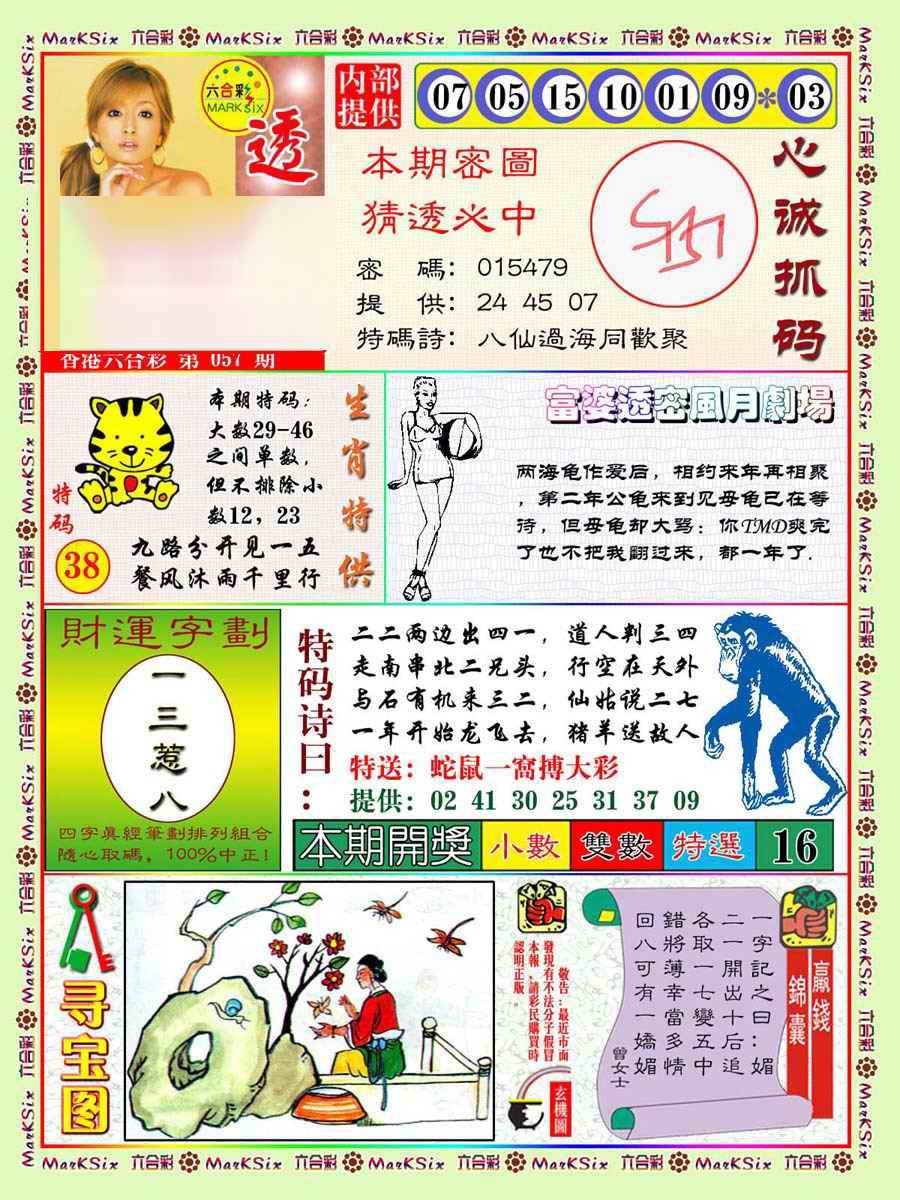 MarKSix 六合彩 MarKSix 六合彩 MarKSix 六合彩 MarKSix 六合彩 MarKSix 六合彩
六合彩
MARK SIX
透
内部
提供
07 05 15 10 01 09 * 03
本期密圖
猜透必中
密 碼：015479
提 供：24 45 07
特碼詩：八仙過海同歡聚
心诚抓码
香港六合彩 第 057 期
特码
38
本期特码：
大数29-46
之间单数，
但不排除小
数12，23
九路分开见一五
餐风沐雨千里行
生肖特供
富婆透密風月劇場
两海龟作爱后，相约来年再相聚
，第二年公龟来到见母龟已在等
待，但母龟却大骂：你TMD爽完
了也不把我翻过来，都一年了．
財運字劃
一三惹八
四字眞經筆劃排列組合
隨心取碼，100%中正！
特码诗曰：
二二两边出四一，道人判三四
走南串北二兄头，行空在天外
与石有机来三二，仙姑说二七
一年开始龙飞去，猪羊送故人
特送：蛇鼠一窩搏大彩
提供：02 41 30 25 31 37 09
本期開獎 小數 雙數 特選 16
寻宝图
敬告：最近市面
發現有不法分子假冒
本報，請彩民購買時
認明正版。
玄機圖
贏錢
錦囊
一字記之曰：媚
二一開出十后追
各取一七變五中
錯將薄幸當多情
回八可有一嬌媚
曾女士
MarKSix 六合彩 MarKSix 六合彩 MarKSix 六合彩 MarKSix 六合彩 MarKSix 六合彩